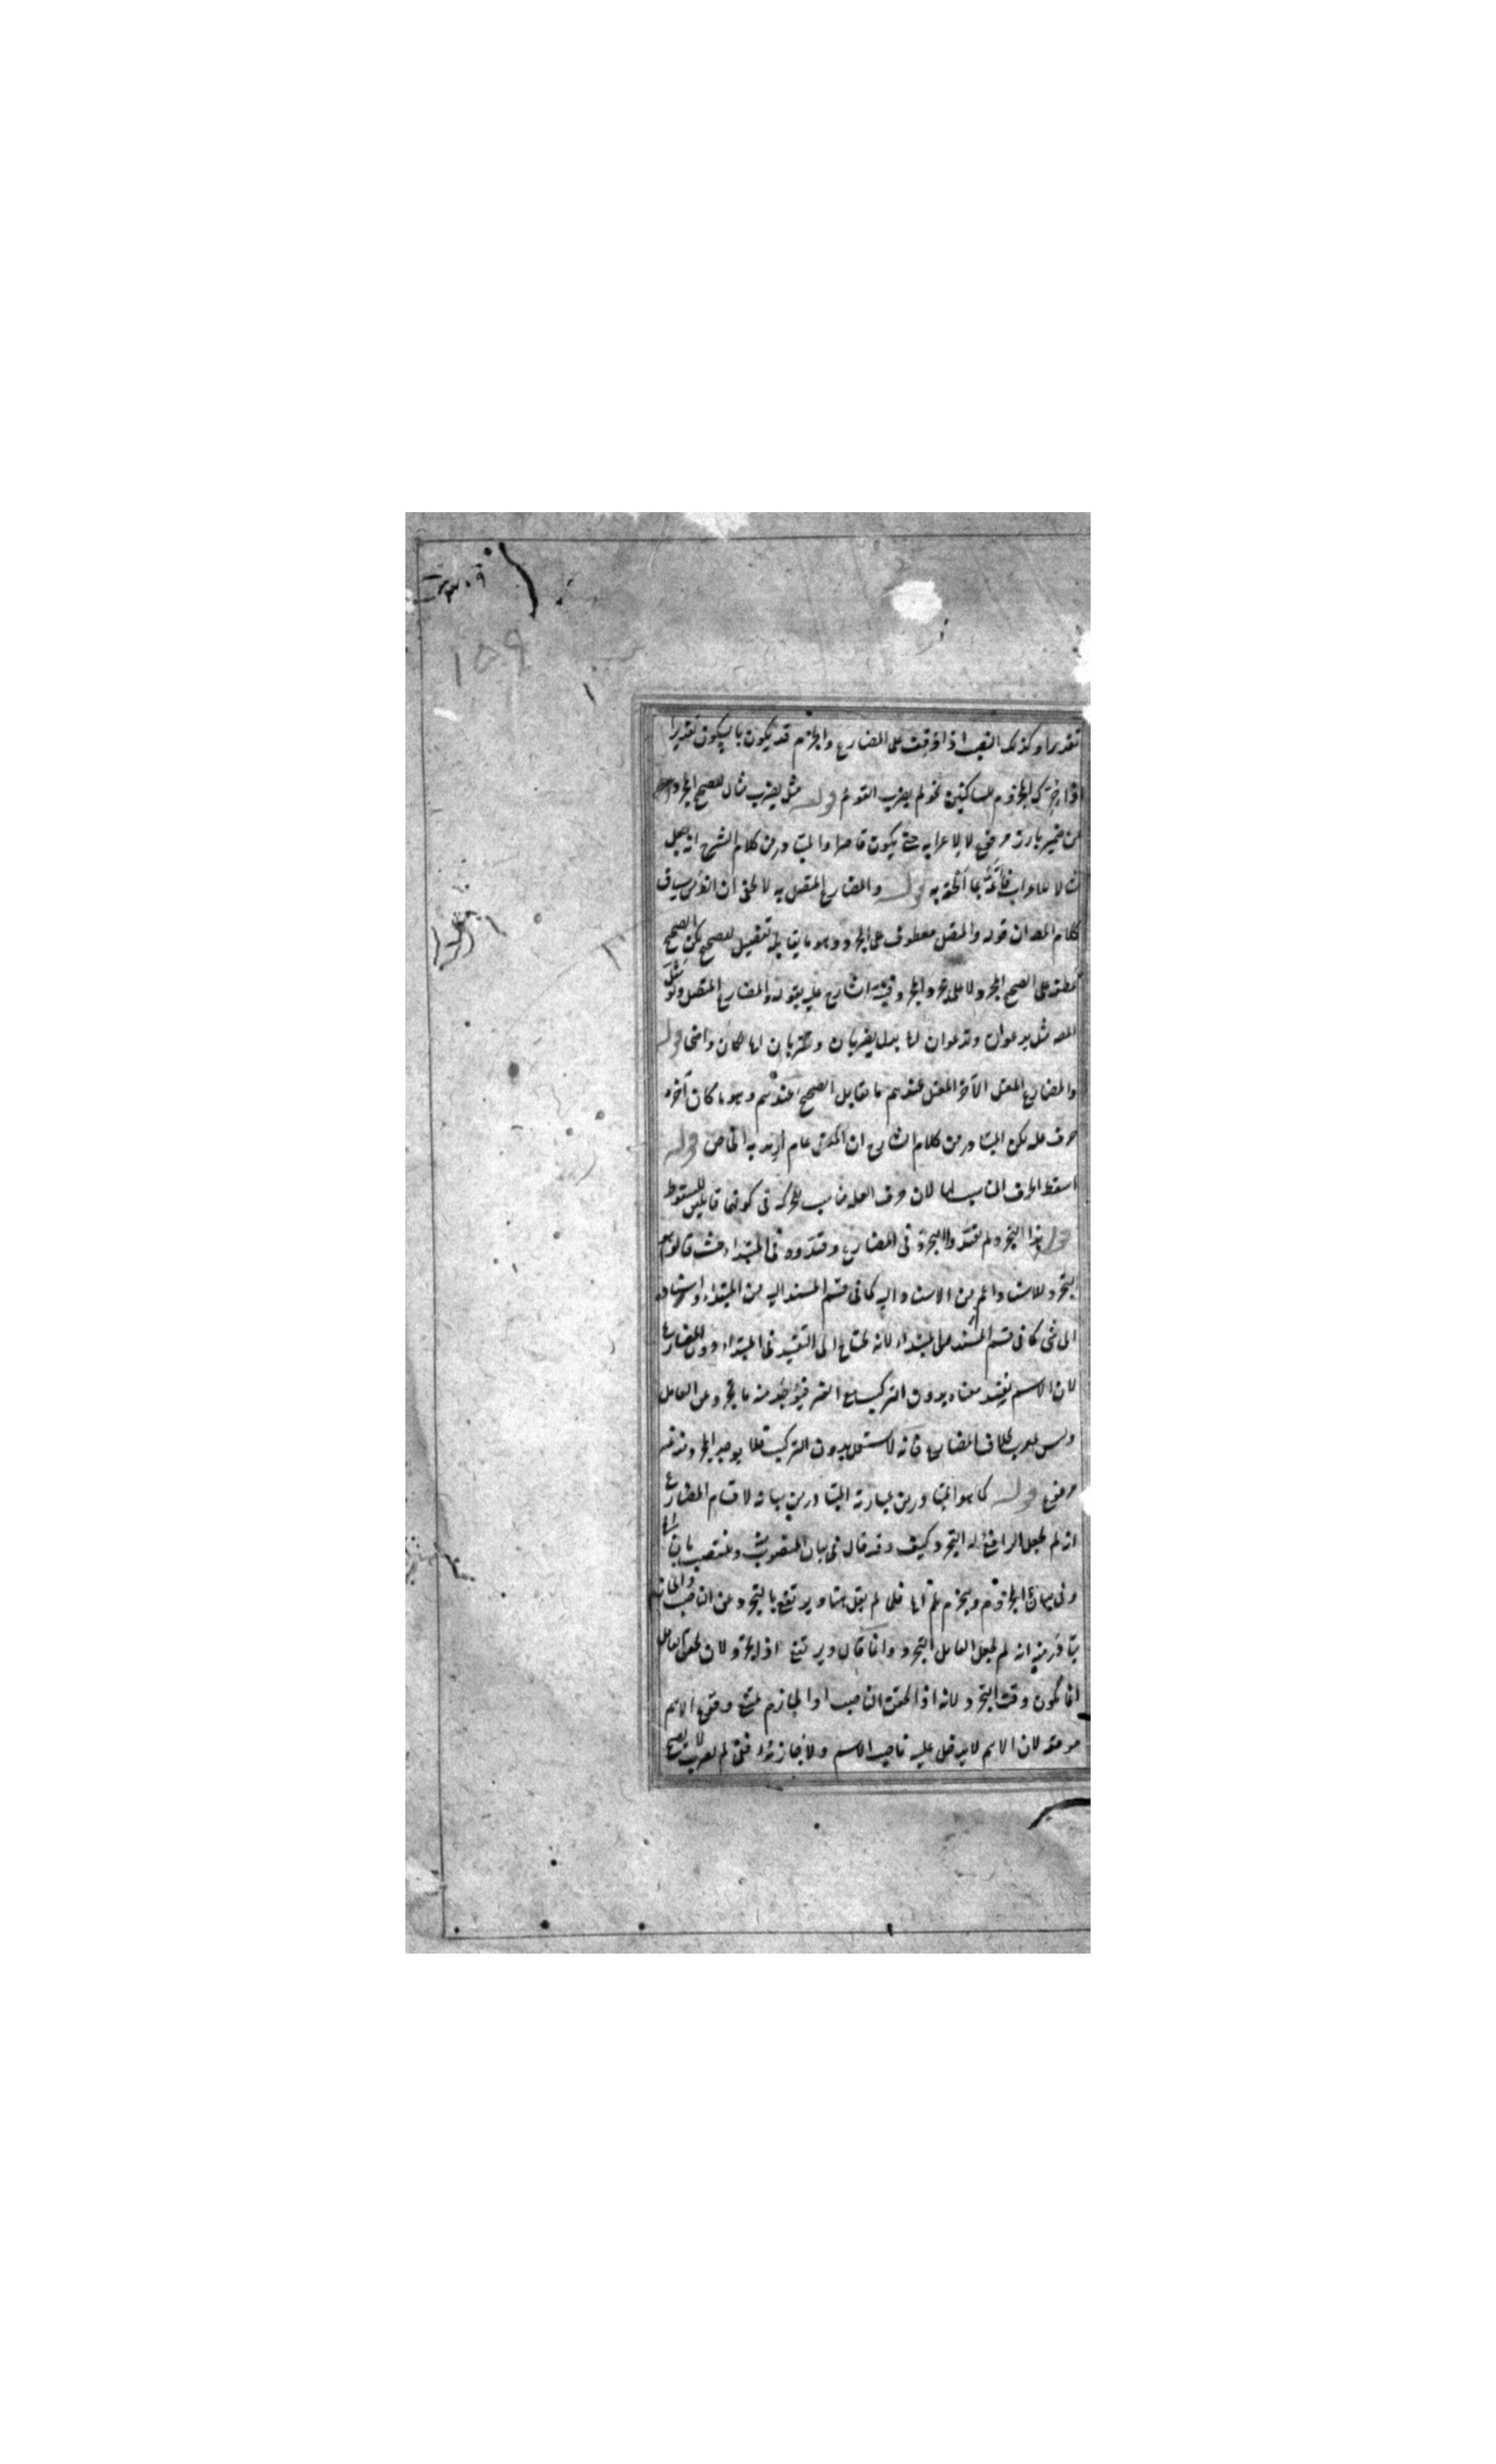 تقديرا وكذلك النصب اذا وقفت على المضارع والجزم قد يكون بالسكون تقديرا
اذا حرك المجزوم للساكنين نحو لم يضرب القوم قوله مثل يضرب مثال للصحيح المجرد
عن ضمير بارز مرفوع لا لاعرابه حتى يكون قاصرا والمتبادر من كلام الشرح انه جعل
مثالا للاعراب فأتمه بما ألحقه به قوله والمضارع المتصل به لا يخفى ان سياق
كلام المصـ ان قوله والمتصل معطوف على المجرد وهو ما يقابله تفصيل للصحيح لكن الصحيح
عطفه على الصحيح المجرد لا على المجرد الشارح عليه بقوله والمضارع المتصل
المصـ مثل يدعوان وتدعوان لها بدل يضربان وتضربان لها لكان واضحا قوله
والمضارع المعتل الآخر المعتل عندهم ما يقابل الصحيح عندهم وهو ما كان آخره
حرف علة لكن المتبادر من كلام الشارح ان المعتل عام اريد به الخاص قوله
اسقط الحرف المناسب لها لان حرف العلة مناسب للحركة في كونها قابلين للسقوط
قوله هذا التجرد لم يقيدوا التجرد في المضارع وقيدوه في المبتداء حيث قالوا
التجرد للاسناد اعم من الاسناد اليه كما في قسم المسند اليه من المبتداء او اسناده
الى شئ كما في قسم المسند من المبتداء لانه يحتاج الى التقييد في المبتداء دون المضارع
لان الاسم يفيد معناه بدون التركيب مع الغير فيوجد منه ما تجرد عن العامل
وليس بمعرب بخلاف المضارع فانه لا يستعمل بدون التركيب فلا يوجد المجرد منه غير
مرفوع قوله كما هو المتبادر من عبارته المتبادر من بيانه لاقسام المضارع
انه لم يجعل الرافع له التجرد كيف وقد قال في بيان المنصوب وينتصب بان
وفي بيان المجزوم وينجزم بلم فلما لم يقل هنا ويرتفع بالتجرد عن الناصب والجازم
يتبادر منه انه لم يجعل العامل التجرد وانما قال ويرتفع اذا تجرد لان تحقق العامل
انما يكون وقت التجرد لانه اذا لحقه الناصب او الجازم يمتنع وقوع الاسم
موقعه لان الاسم لا يدخل عليه ناصب الاسم ولا جازمه